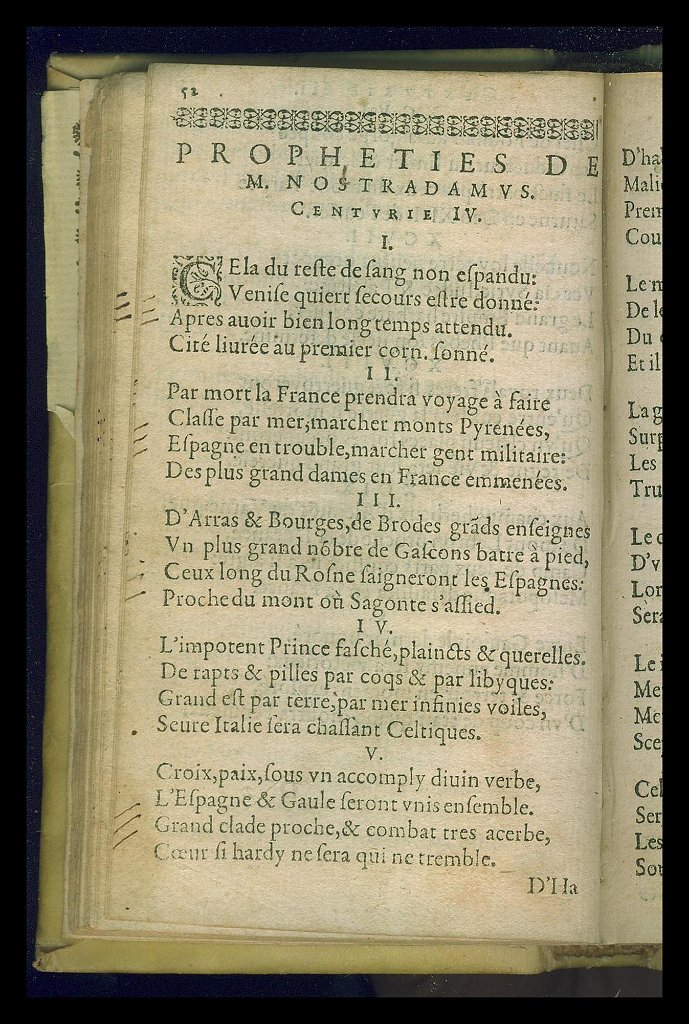 52
PROPHETIES DE
M. NOSTRADAMVS.
CENTVRIE IV.
I.
CEla du reſte de ſang non eſpandu:
Veniſe quiert ſecours eſtre donné:
Apres auoir bien long temps attendu.
Cité liurée au premier corn. ſonné.
II.
Par mort la France prendra voyage à faire
Claſſe par mer, marcher monts Pyrenées,
Eſpagne en trouble, marcher gent militaire:
Des plus grand dames en France emmenées.
III.
D'Arras & Bourges, de Brodes grāds enſeignes
Vn plus grand nōbre de Gaſcons batre à pied,
Ceux long du Roſne ſaigneront les Eſpagnes:
Proche du mont où Sagonte s'aſſied.
IV.
L'impotent Prince faſché, plaincts & querelles.
De rapts & pilles par coqs & par libyques:
Grand eſt par terre, par mer infinies voiles,
Seure Italie ſera chaſſant Celtiques.
V.
Croix, paix, ſous vn accomply diuin verbe,
L'Eſpagne & Gaule ſeront vnis enſemble.
Grand clade proche, & combat tres acerbe,
Cœur ſi hardy ne ſera qui ne tremble.
D'Ha
D'ha
Mali
Prem
Cou
Le m
De l
Du
Et il
La g
Surp
Les
Tru
Le
D'v
Lor
Sera
Le
Me
Mc
Sce
Cel
Ser
Les
Sou